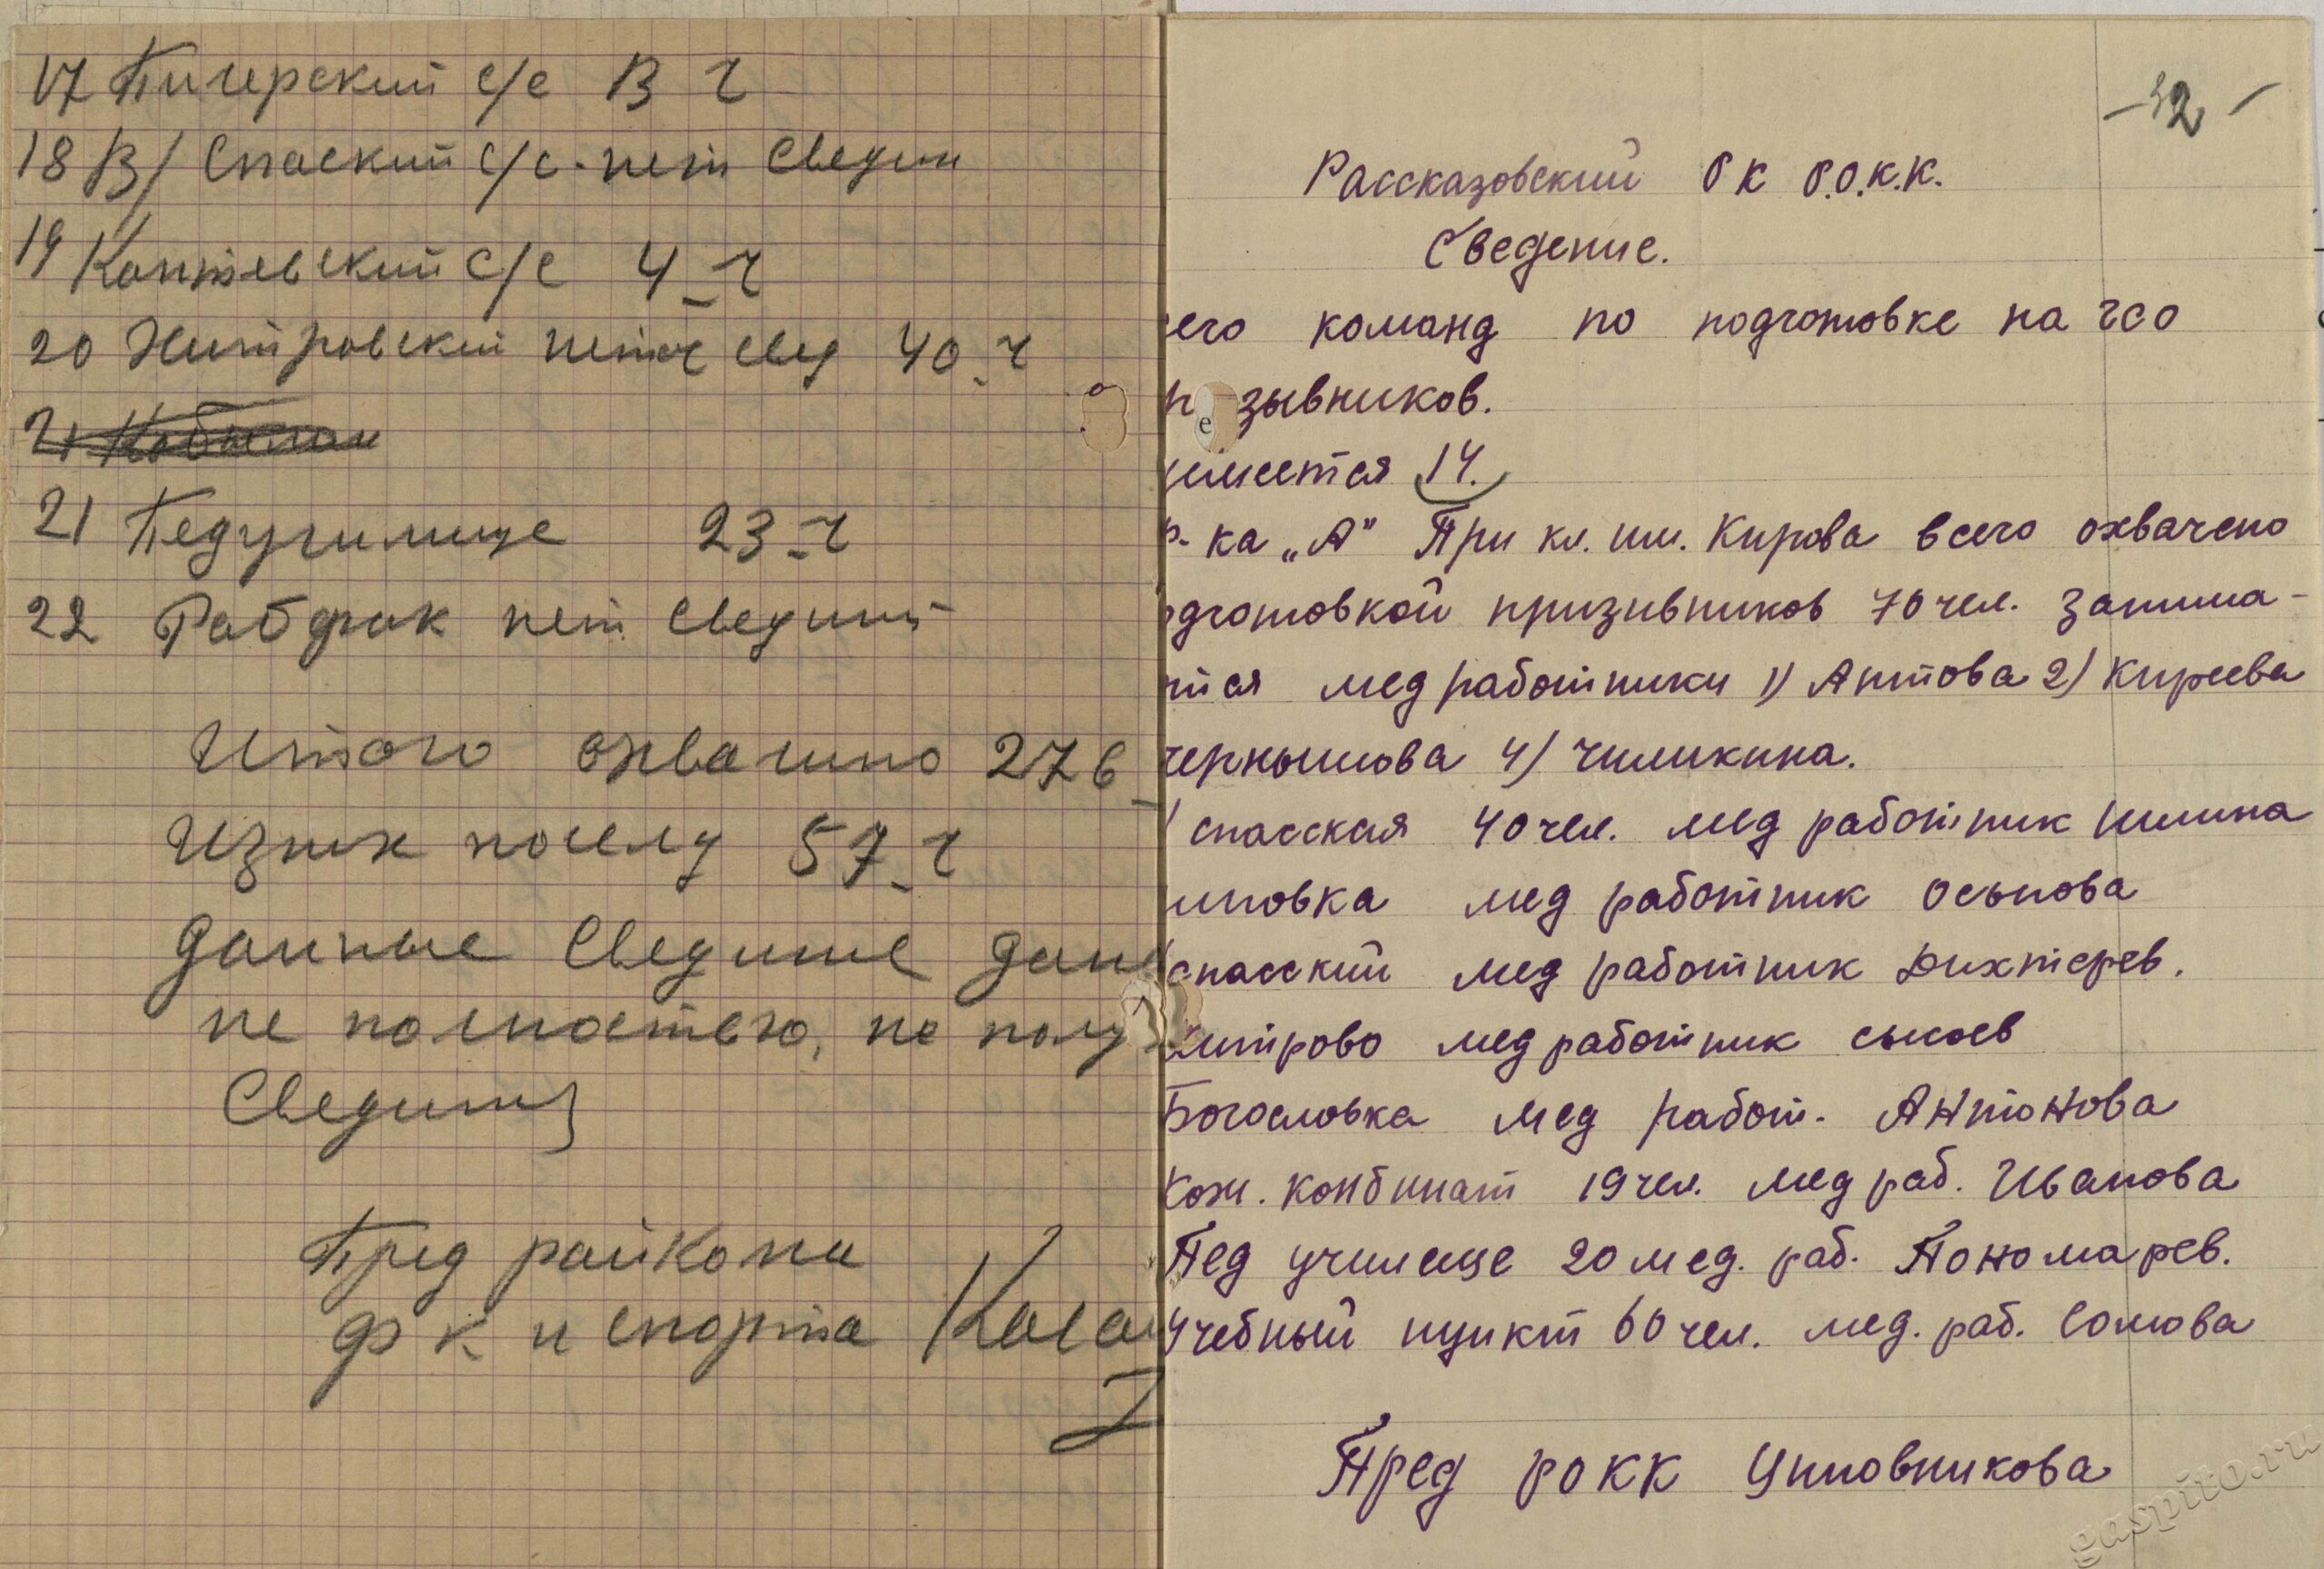 17 Пичерский с/с 13 ч
18 В/Спаский с/с - нет сведин
19 Коптевский с/с 4-ч
20 Хитровский неточ свед 40-ч
21 Педучилище 23-ч
22 Рабфак нет сведиий
Итого охвачино 276
Изних по селу 57-ч
Данные свединие дан
не полностью, не полу
Сведиий
Пред райкома
ф к и спорта
32
Рассказовский РК Р.О.К.К.
Сведение.
его команд по подготовке на ГСО
п е зывников.
имеется 14.
р-ка „А" При кл. им. Кирова всего охвачено
одготовкой призывников 70 чел. занима-
тся мед работники 1) Антова 2) Киреева
чернышова 4) Чиликина.
спасская 40 чел. мед работник Шишна
иповка мед работник Осьпова
спасский мед работник Дихтерев.
хитрово мед работник сысоев
Богословка мед работ. Антонова
Кож. комбинат 19 чел. мед раб. Иванова
Пед училеще 20 мед. раб. Пономарев.
Учебный пункт 60 чел. мед. раб. Сомова
Пред РОКК
gaspito.ru